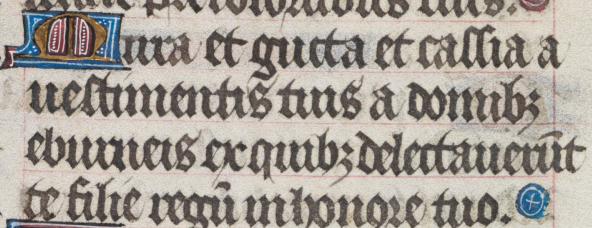 tuis.
Mirra et gutta et cassia a
uestimentis tuis a domibꝫ
eburneis ex quibꝫ delectauerūt
te filie regū in honore tuo.